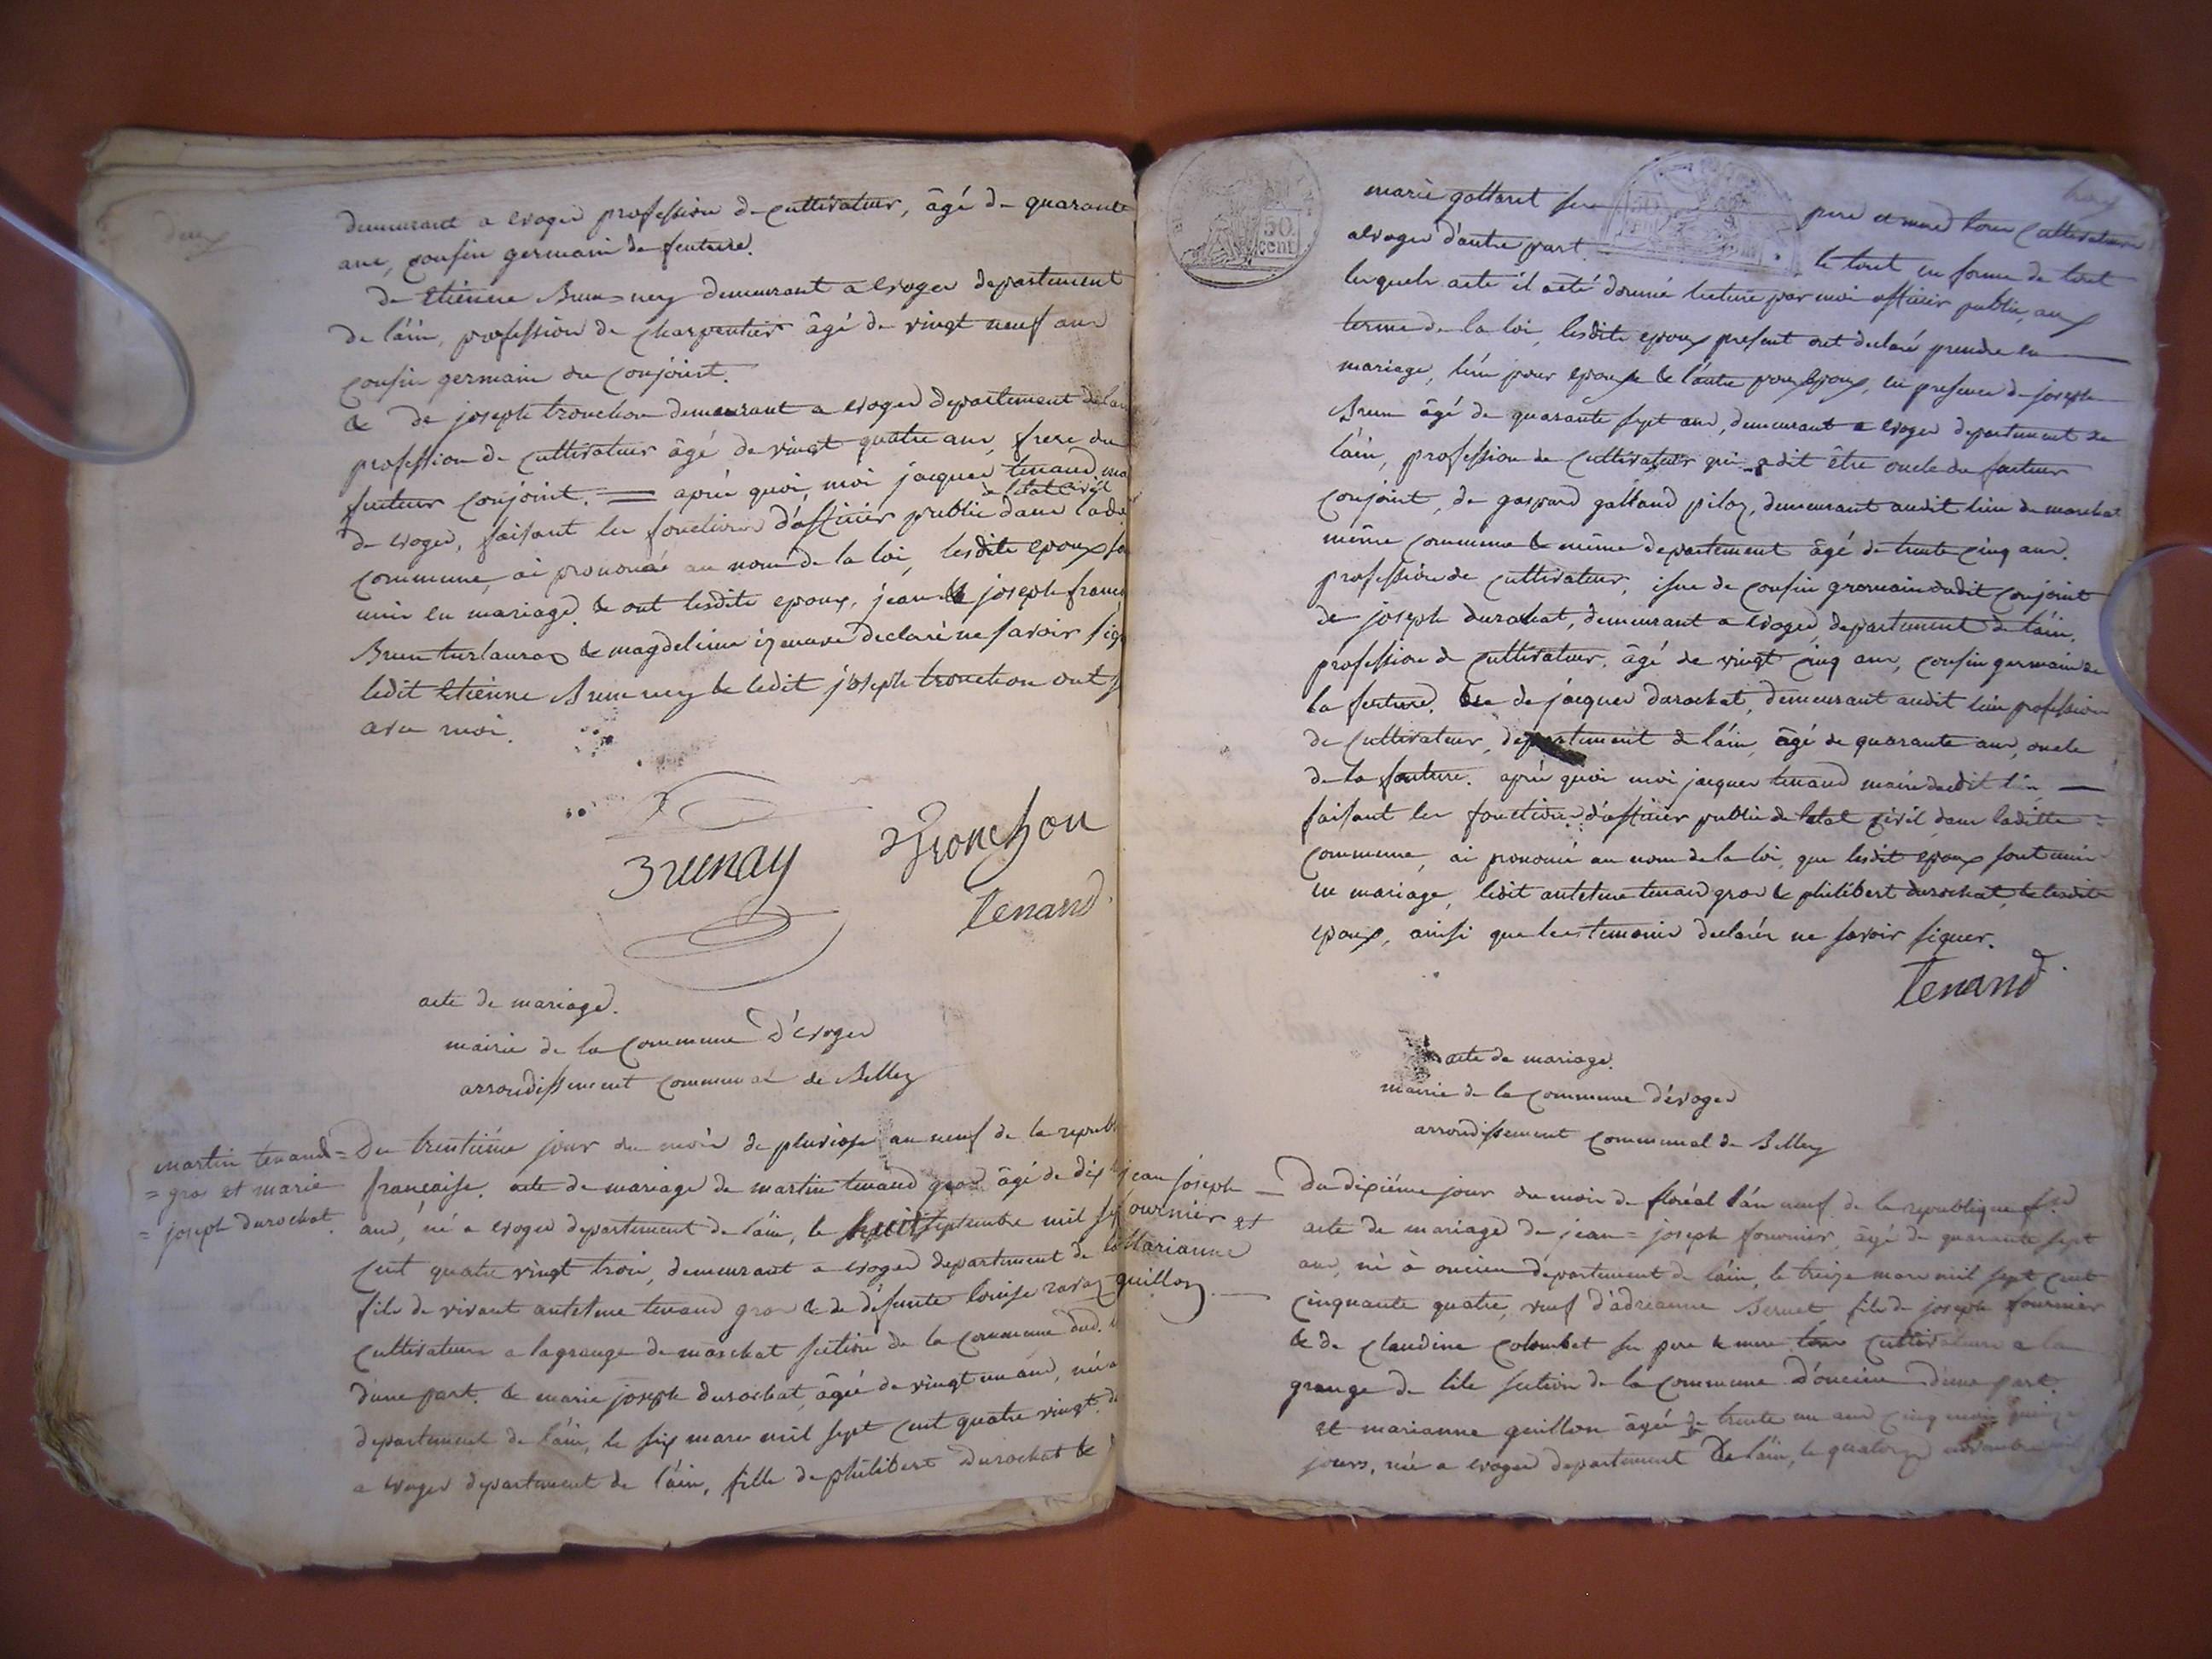 deux
demeurant a evoges profession de cultivateur, âgé de quarante
ans, cousin germain de feuture.
de etienne Brun=ney demeurant a evoges departement
de láin, profession de charpentier âgé de vingt neuf ans
cousin germain du conjoint.
& de joseph tronchon demeurant a evoges departement de láin
profession de cultivateur âgé de vingt quatre ans, frere du
feuteur conjoint. = aprés quoi, moi jacques tenand
de letat civil
de evoges, faisant les fonctions d'officier public dans
commune, ai prononcé au nom de la loi, lesdits epoux
unis en mariage. & ont lesdits epoux, jean & joseph
Brun turlauraz & magdeleine declaré ne savoir
ledit etienne Brun ney & ledit joseph tronchon ont
avec moi.
Brunay
Tronchon
Tenand
acte de mariage.
mairie de la commune d'evoges
arrondissement communal de Belley
martin tenand =
= gros et marie
= joseph durochat.
Du trentiéme jour du mois de pluviose an neuf de la
francaise. acte de mariage de martin tenand gros âgé de dix
ans, né a evoges departement de láin, le huit septembre mil
cent quatre vingt trois, demeurant a evoges departement de
fils de vivant antelme tenand gros & de défunte louise ravoz
cultivateurs a lagrange de marchat section de la commune
d'une part. & marie joseph durochat, âgée de vingt un ans, née
departement de láin, le six mars mil sept cent quatre vingt.
a evoges departement de láin, fille de philibert durochat &
marie gallaret ses pere et mere tous cultivateurs
a evoges d'autre part. le tout en forme de tout
50 cent
lesquels acte il a été donné lecture par moi officier public, aux
terme de la loi, lesdits epoux present ont declaré prendre en
mariage, lún pour epouse & láutre pour epoux, en presence de joseph
Brun âgé de quarante sept ans, demeurant a evoges departement de
láin, profession de cultivateur qui a dit être oncle du feuteur
conjoint, de gaspard galland piloz, demeurant audit lieu de marchat
même commune & même departement âgé de trente cinq ans.
profession de cultivateur, issue de cousin gromain dudit conjoint
de joseph durochat, demeurant a evoges, departement de láin,
profession de cultivateur, âgé de vingt cinq ans, cousin germain de
la feuture. de jacques darochat, demeurant audit lieu profession
de cultivateur, departement de láin, âgé de quarante ans, oncle
de la feuture. aprés quoi moi jacques tenand maire dudit lieu
faisant les fonctions d'officier public de letat civil dans laditte
commune, ai prononcé au nom de la loi, que lesdit epoux sont unis
en mariage, ledit antelme tenand gros & philibert durochat, & lesdits
epoux, ainsi que les temoins declarés ne savoir signer.
Tenand
acte de mariage.
mairie de la commune d'évoges
arrondissement communal de Belley
jean joseph
fournier et
Marianne
guillon
Du dixiéme jour du mois de floréal l'an neuf de la republique
acte de mariage de jean=joseph fournier, âgé de quarante sept
ans, né à oncieu departement de láin, le treize mars mil sept cent
cinquante quatre, veuf d'adrianne Bernet, fils de joseph fournier
& de claudine colombet ses pere & mere tous cultivateurs a la
grange de lile section de la commune d'oncieu d'une part.
et marianne guillon âgée de trente un ans cinq mois quinze
jours, née a evoges departement de láin, le quatorze novembre